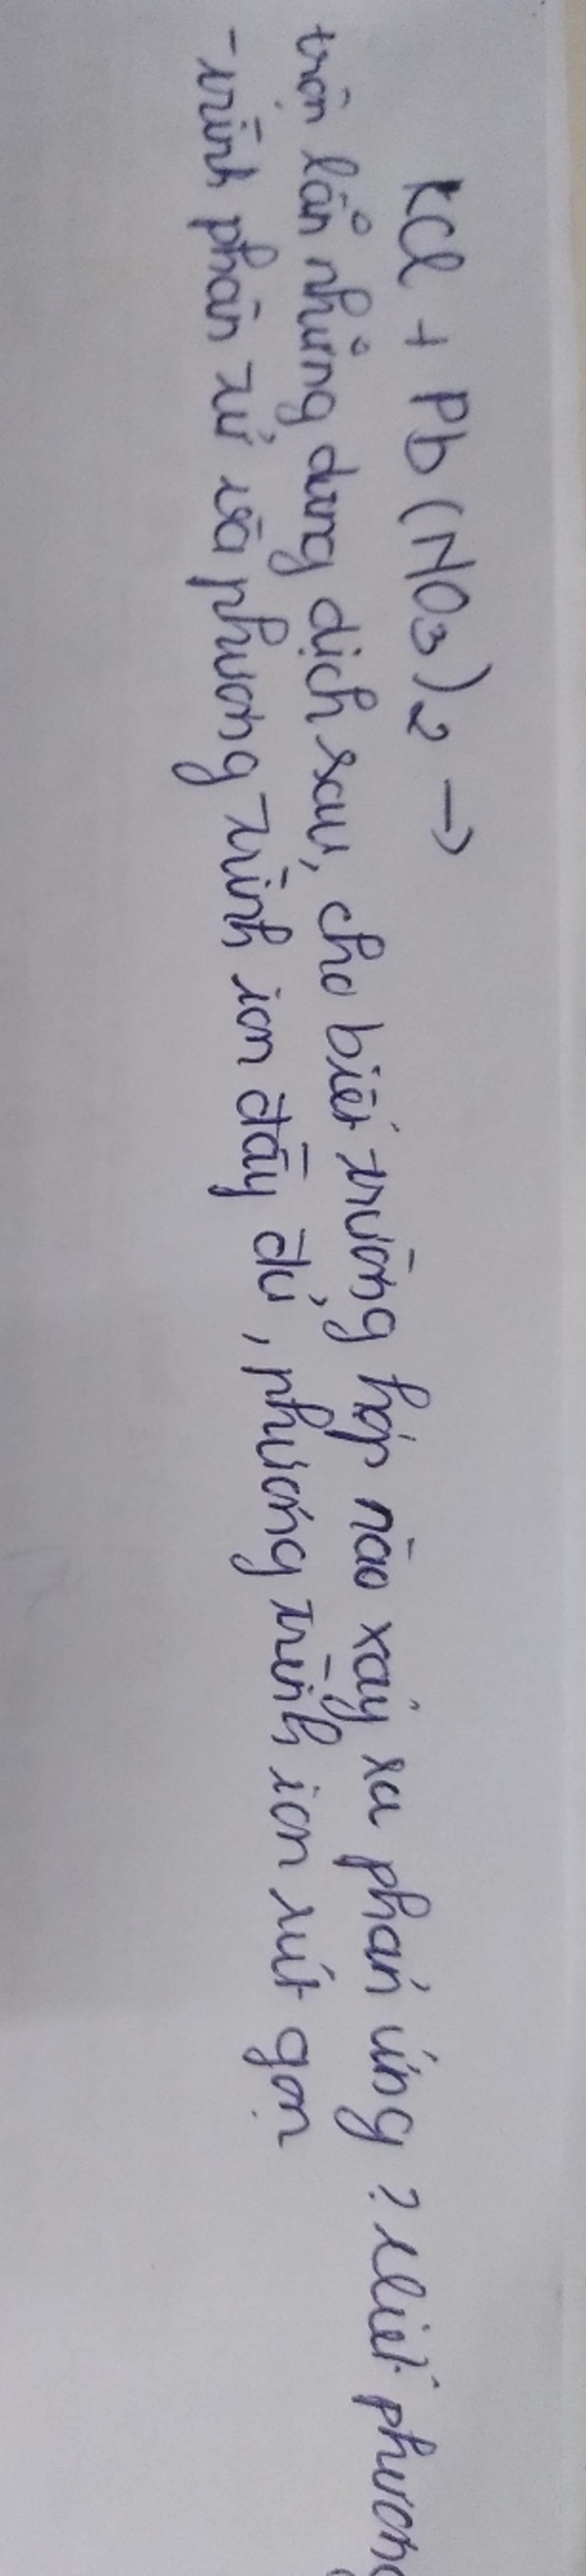 KCl + Pb(NO3)2 →
trộn lẫn những dung dịch sau, cho biết trường hợp nào xảy ra phản ứng? Viết phương
-trình phân tử và phương trình ion đầy đủ, phương trình ion rút gọn